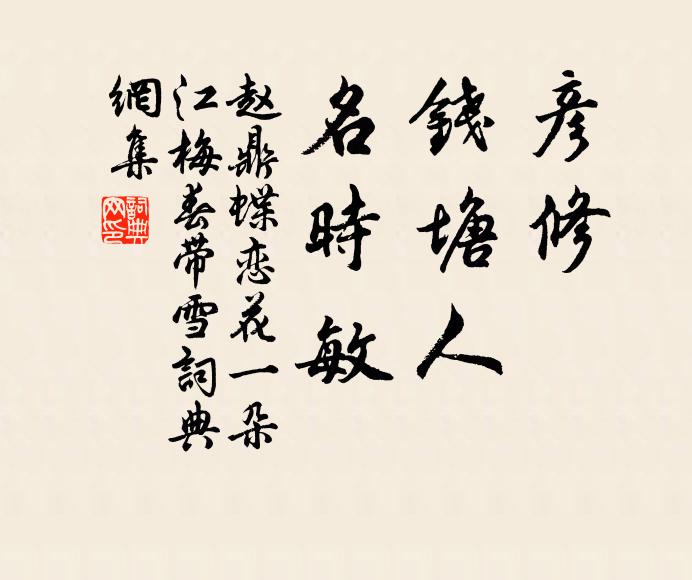 彦修
錢塘人
名時敏
赵鼎蝶恋花一朵
江梅春带雪詞典
網集
詞典
网印